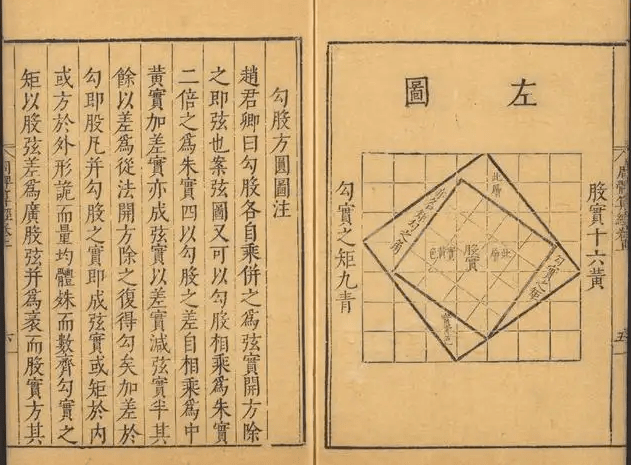 左圖
股實十六黃
此層
勾實之矩
股實
此層
勾實之矩九青
勾股方圓圖注
趙君卿曰勾股各自乘併之爲弦實開方除
之即弦也案弦圖又可以勾股相乘爲朱實
二倍之爲朱實四以勾股之差自相乘爲中
黃實加差實亦成弦實以差實減弦實半其
餘以差爲從法開方除之復得勾矣加差於
勾即股凡并勾股之實即成弦實或矩於內
或方於外形詭而量均體殊而數齊勾實之
矩以股弦差爲廣股弦并爲袤而股實方其